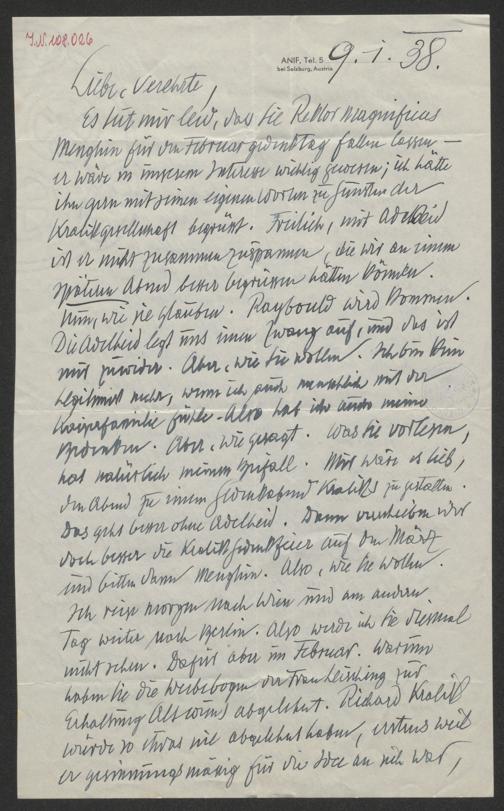 J.N. 108.026
ANIF, Tel. 5
bei Salzburg, Austria
9. 1. 38.
Liebe, Verehrte,
Es tut mir leid, dass Sie Rektor Magnificus
Menghin für den Februargedenktag fallen lassen –
er wäre in unserem Interesse wichtig gewesen; ich hätte
ihn gern mit seinen eigenen Worten zu Gunsten der
Kralikgesellschaft begrüsst. Freilich, mit Adelheid
ist er nicht zusammen zu spannen, die wir an einem
späteren Abend besser begrüssen hätten können.
Nun, wie Sie glauben. Raybould wird kommen.
Die Adelheid legt uns einen Zwang auf, und das ist
mir zuwider. Aber, wie Sie wollen. Ich bin kein
Legitimist mehr, wenn ich auch menschlich mit der
Kaiserfamilie fühle. Also hab ich auch meine
Bedenken. Aber, wie gesagt. Was Sie vorlesen,
hat natürlich meinen Beifall. Mir wäre es lieb,
den Abend zu einem Gedenkabend Kraliks zu gestalten.
Das geht besser ohne Adelheid. Dann verschieben wir
doch besser die Kralikgedenkfeier auf den März
und bitten dann Menghin. Also, wie Sie wollen.
Ich reise morgen nach Wien und am andern
Tag weiter nach Berlin. Also werde ich Sie diesmal
nicht sehen. Dafür aber im Februar. Warum
haben Sie die Werbebogen der Frau Leisching zur
Erhaltung Alt Wiens abgelehnt. Richard Kralik
würde so etwas nie abgelehnt haben, erstens weil
er gesinnungsmässig für die Idee an sich war,